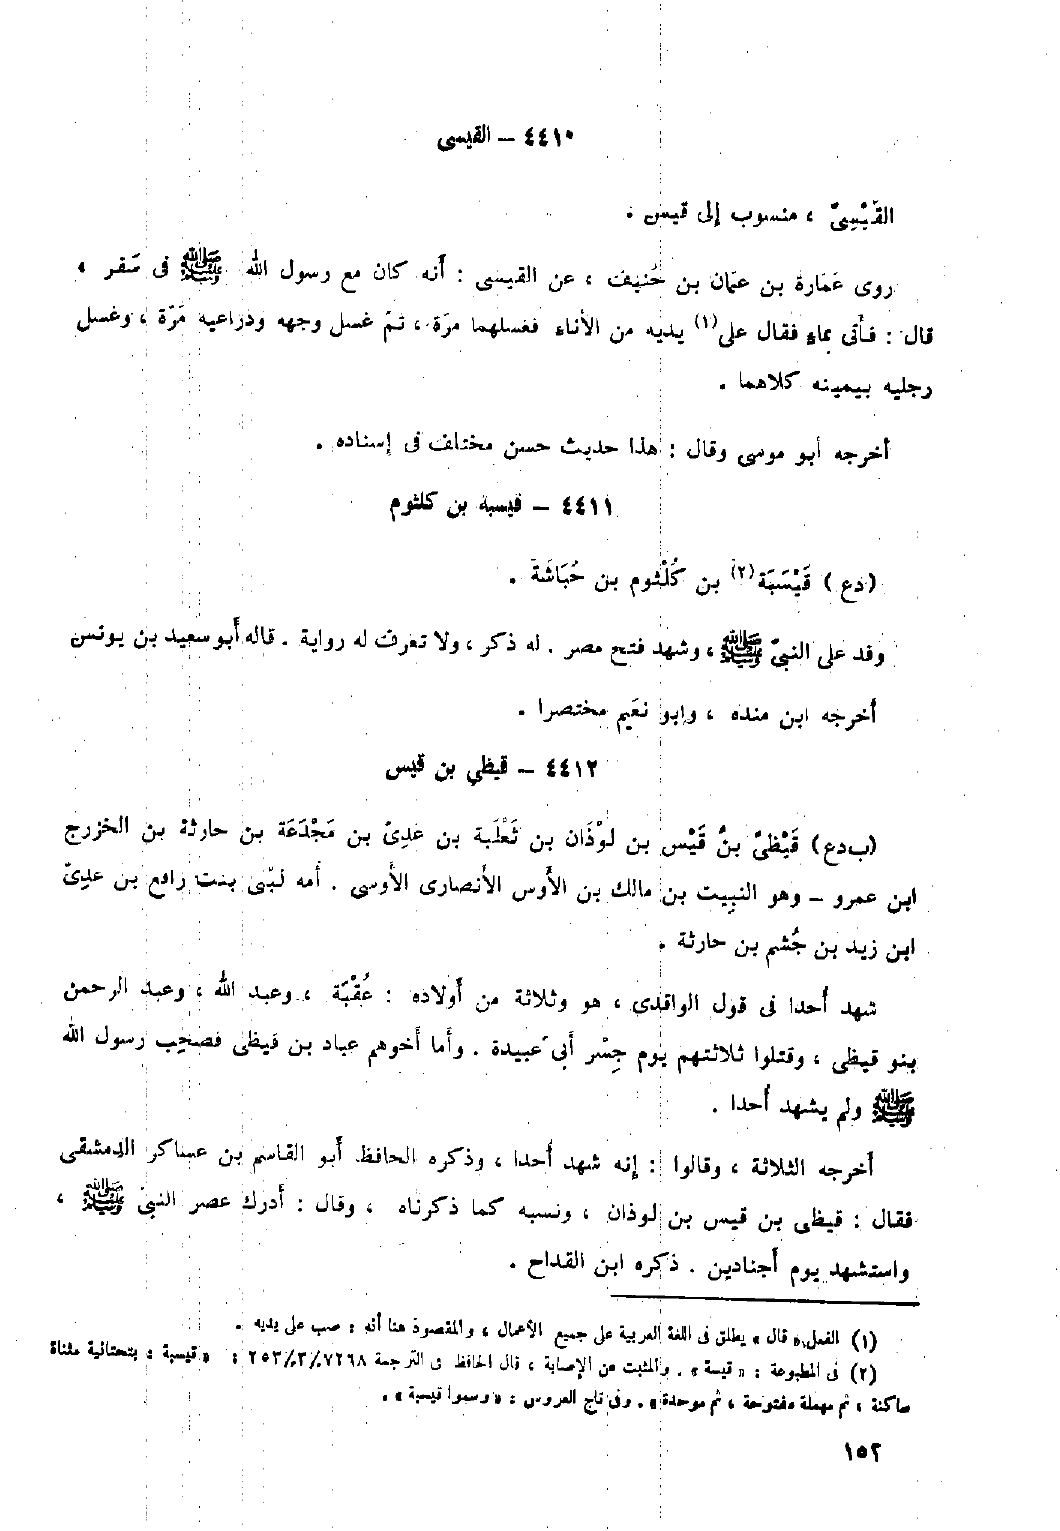 ٤٤١٠ – القيسى
القَيْسِىّ ، منسوب إلى قيس .
روى عَمَارة بن عثمان بن حُنيف ، عن القيسى : أنه كان مع رسول الله ﷺ فى سَفر ،
قال : فأَتى بماء فقال على(١) يديه من الأناء فغسلهما مرّة ، ثمّ غسل وجهه وذراعيه مَرّة ، وغسل
رجليه بيمينه كلاهما .
أخرجه أبو موسى وقال : هذا حديث حسن مختلف فى إسناده .
٤٤١١ – قيسبة بن كلثوم
(دع) قَيْسَبَة(٢) بن كُلْثوم بن حُبَاشَة .
وفد على النبىّ ﷺ ، وشهد فتح مصر . له ذكر ، ولا تعرف له رواية . قاله أَبو سعيد بن يونس
أخرجه ابن منده ، وابو نعَيم مختصرا .
٤٤١٢ – قيظي بن قيس
(ب د ع) قَيْظىّ بنُ قَيْس بن لوْذَان بن ثَعْلَبة بن عَدِىّ بن مَجْدَعَة بن حارثة بن الخزرج
ابن عمرو – وهو النبِيت بن مالك بن الأَوس الأنصارى الأَوسى . أمه لبّى بنت رافع بن عدِىّ
ابن زيد بن جُشم بن حارثة .
شهد أُحدا فى قول الواقدى ، هو وثلاثة من أَولاده : عُقْبَة ، وعبد الله ، وعبد الرحمن
بنو قيظى ، وقتلوا ثلاثتهم يوم جِسْر أَبى عبيدة . وأَما أَخوهم عباد بن قيظى فصحِب رسول الله
ﷺ ولم يشهد أُحدا .
أخرجه الثلاثة ، وقالوا : إنه شهد أُحدا ، وذكره الحافظ أَبو القاسم بن عساكر الدمشقى
فقال : قيظى بن قيس بن لوذان ، ونسبه كما ذكرناه ، وقال : أَدرك عصر النبىّ ﷺ ،
واستشهد يوم أَجنادين . ذكره ابن القداح .
(١) الفعل « قال » يطلق فى اللغة العربية على جميع الأعمال ، والمقصود هنا أنه : صب على يديه .
(٢) فى المطبوعة : « قيسة » . والمثبت من الإصابة ، قال الحافظ فى الترجمة ٧٢٦٨/٣/٢٥٣ : « قيسبة : بتحتانية مثناة
ساكنة ، ثم مهملة مفتوحة ، ثم موحدة » . وفى تاج العروس : « وسموا قيسبة » .
١٥٢